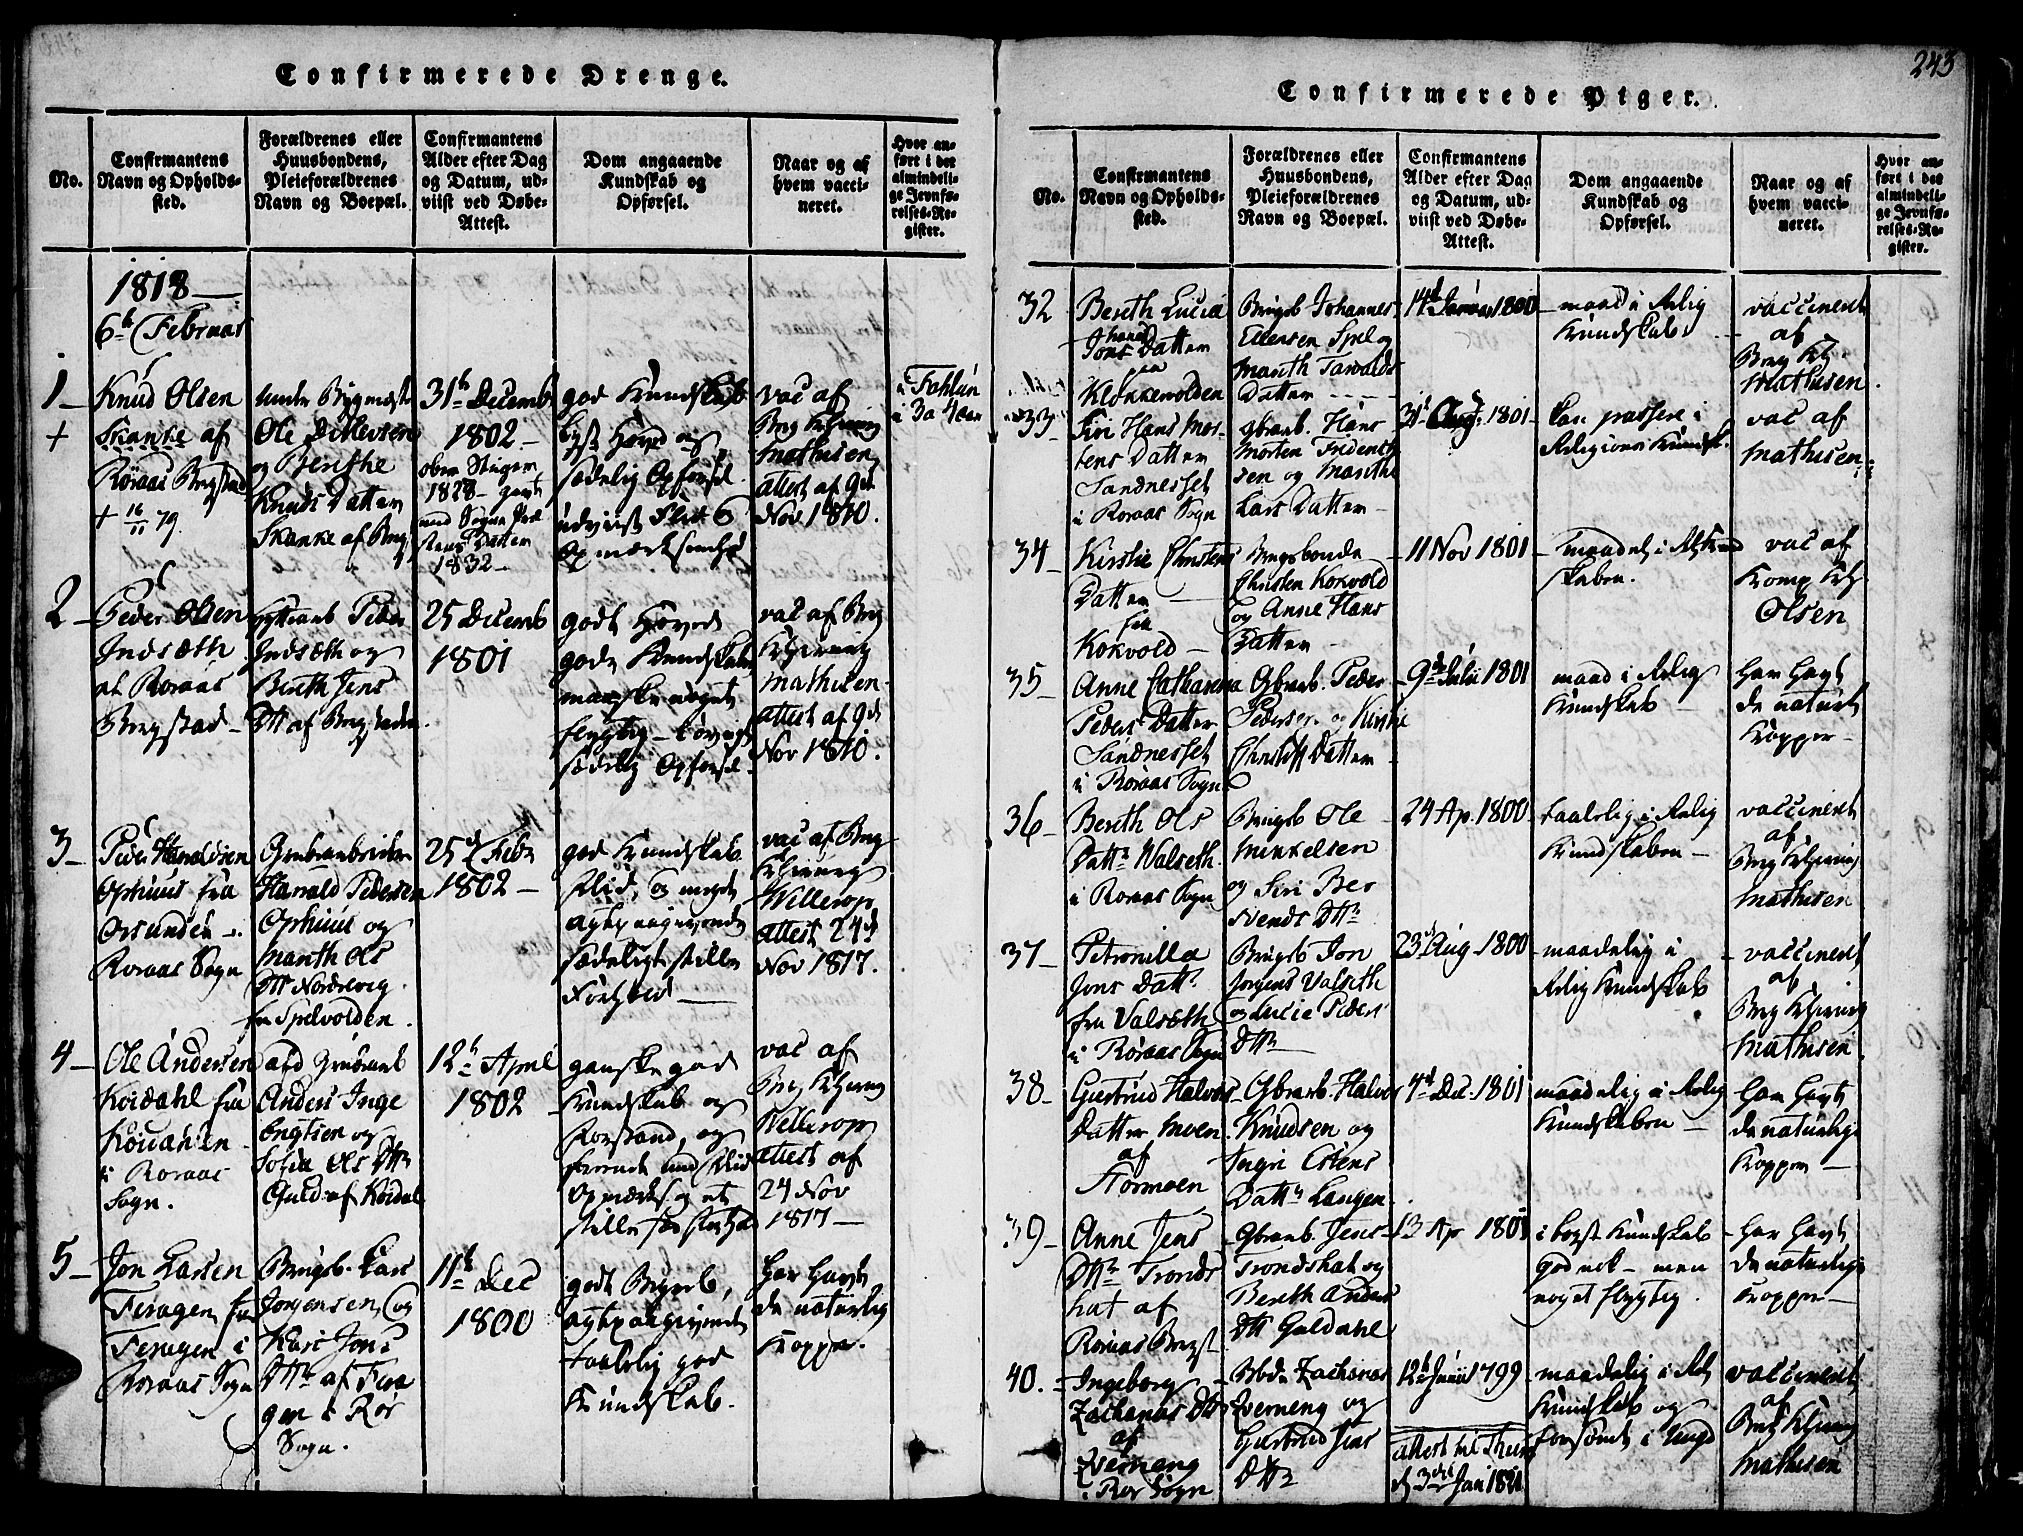 Confirmerede Drenge.
No.
Confirmantens
Navn og Opholds-
sted.
Forældrenes eller
Huusbondens,
Pleieforældrenes
Navn og Boepæl.
Confirmantens
Alder efter Dag
og Datum, ud-
viist ved Døbe-
Attest.
Dom angaaende
Kundskab og
Opførsel.
Naar og af
hvem vacci-
neret.
Hvor an-
ført i det
almindeli-
ge Jevnfø-
relses-Re-
gister.
1818
6te Februar
1
Knud Olsen
Skanke af
Røraas Bergstad
+ 16/11 79.
Ole Ditlevsen
og Berethe
Knuds Datter
Skanke af Berg
31te Decemb
1802
1828
1832
god Kundskab
sædelig Opførsel
udviist Flid &
Opmærksomhed
vac af
Berg Chirurg
Mathisen
attest af 9de
Nov 1810.
2
Peder Olsen
Indsæth
at Roraas
Bergstad
Indsæth og
Bereth Jens
Dtt af Bergstaden
25 Decemb
1801
godt Hoved
gode Kundskaber
maaske noget
flygtig
sædelig Opførsel
vac af Berg
Chirurg
Mathisen
attest af 9de
Nov 1810.
3
Peder Haraldsen
Ophuus fra
Orsunden
Roraas Sogn
Grubearbeider
Harald Pedersen
Ophuus og
Marith Ols
Dtt Nordevig
fra Spelvolden.
25d Febr
1802
god Kundskab
Flid, og meget
agtpaagivende
sædeligt stille
Forhold
vac af Berg
Chirurg
Wellerop
attest 24d
Nov 1817.
4
Ole Andersen
Koidahl fra
i Roraas
Sogn.
Anders Inge
brigtsen og
Ols Dtr
Guld af Koidal
12te April
1802
ganske god
Kundskab og
Forstand, og
vac af
Berg Chirurg
Wellerop
attest af
24 Nov
1817
5
Jon Larsen
Feragen fra
Feragen i
Roraas Sogn
Brugsb. Lars
Jorgensen og
Kari Jons
Dtr af Fera
gen i Ror
Sogn.
11te Dec
1800
godt Begreb,
agtpaagivende
taalelig god
Kundskab.
Har havt
de naturlig
Kopper.
243
Confirmerede Piger.
No.
Confirmantens
Navn og Opholds-
sted.
Forældrenes eller
Huusbondens,
Pleieforældrenes
Navn og Boepæl.
Confirmantens
Alder efter Dag
og Datum, ud-
viist ved Døbe-
Attest.
Dom angaaende
Kundskab og
Opførsel.
Naar og af
hvem vacci-
neret.
Hvor an-
ført i det
almindeli-
ge Jevnfø-
relses-Re-
gister.
32
Bereth Lucia
Datter
Klokkervolden
Brugsb Johannes
Ellensen Spel og
Marith Tarvalds
Datter
14d Januar 1800
maad i Relig
Kundskab
vaccineret
af
Berg Ch.
Mathisen
33
Siri Hans Mor-
tens Datter
Sandnesset
i Roraas Sogn
Gbrarb. Hans
Morten Fridrich
sen og Marithe
Lars Datter
31t Aug. 1801
kan passere i
Religions Kundsk.
vac af
Mathisen
34
Kirstie Christens
Datter
fra
Kokvold
Brugsbonde
Christen Kokvold
og Anne Hans
Datter
11 Nov 1801
maadel i Rel Kund
skaben.
vac af
Komp Ch.
Olsen
35
Anne Catharina
Peders Datter
Sandnesset
i Roraas Sogn
Gbrarb. Peder
Pedersen og Kirstie
Christoff Datter
9de Julii 1801
maad i Relig
Kundskab
Har havt
de naturl
Kopper
36
Bereth Ols
Dattr Walseth
i Roraas Sogn
Brugsb Ole
Mikkelsen
og Siri Ber
svends Dtr
24 Ap. 1800
taalelig i Relig
Kundskaben
vaccineret
af
Berg Chirurg
Mathisen
37
Petronilla
Jons Dattr.
fra Valsæth
i Røraas Sogn
Brugsb Jon
Jorgens Valseth
og Lucie Peders
Dtr
23d Aug 1800
maadelig i
Relig Kundskab
vaccineret
af
Berg Chirurg
Mathisen
38
Gjertrud Halvors
Datter Moen
af
Stormoen
Gbrarb. Halvor
Knudsen og
Sigri Estens
Dattr Langen.
4d Dec. 1801
maadelig i Relig
Kundskaben
Har havt
de naturlige
Kopper
39
Anne Jens
Dtr Tronds
hat af
Roraas Bergst
Gbrarb. Jens
Trondshat og
Bereth Anders
Dtt Guldahl
13 Ap 1801
i bogst Kundskab
god nok – men
noget flygtig.
Har havt
de naturlige
Kopper
40.
Ingeborg
Zacharias Dtt
af
Zverneng
i Ror Sogn
Zacharias
Zverneng og
Gjertrud Jens
Dtr
12te Junii 1799
attest til
d 3die Jan 1821
maadelig i Rel
Kundskab og
vaccineret
af
Berg Chirurg
Mathisen